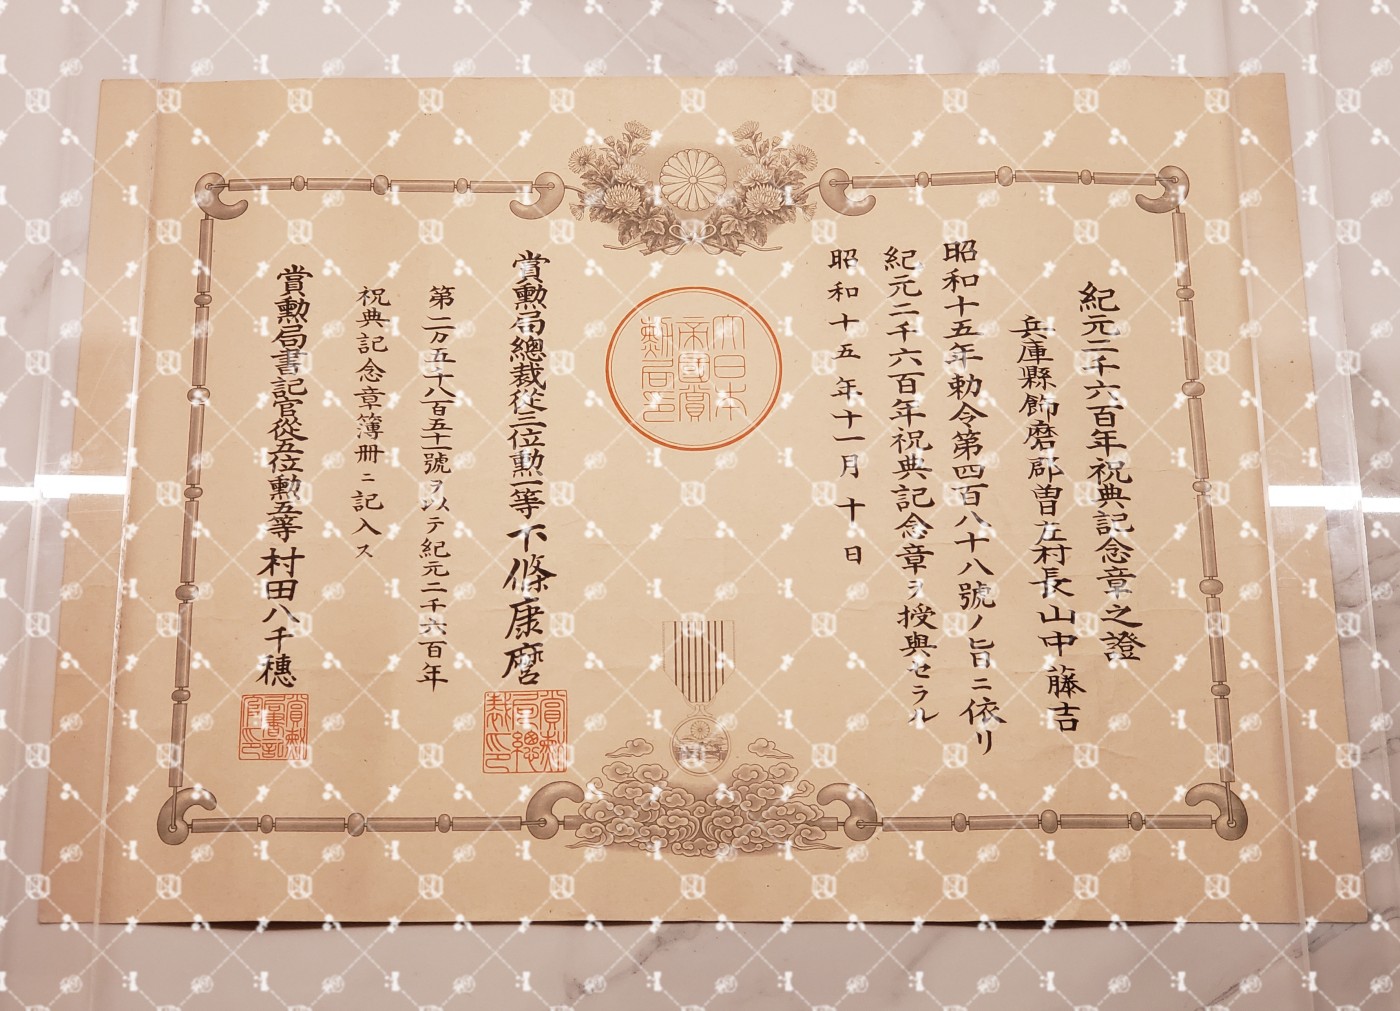 紀元二千六百年祝典記念章之證
兵庫縣飾磨郡曽左村長山中藤吉
昭和十五年勅令第四百八十八號ノ旨ニ依リ
紀元二千六百年祝典記念章ヲ授與セラル
昭和十五年十一月十日
大日本
帝國賞
勲局印
賞勲局總裁從三位勲一等下條康麿
賞勲
局總
裁印
第二万五千八百五十一號ヲ以テ紀元二千六百年
祝典記念章簿冊ニ記入ス
賞勲局書記官從五位勲五等村田八千穗
賞勲
局書記
官印